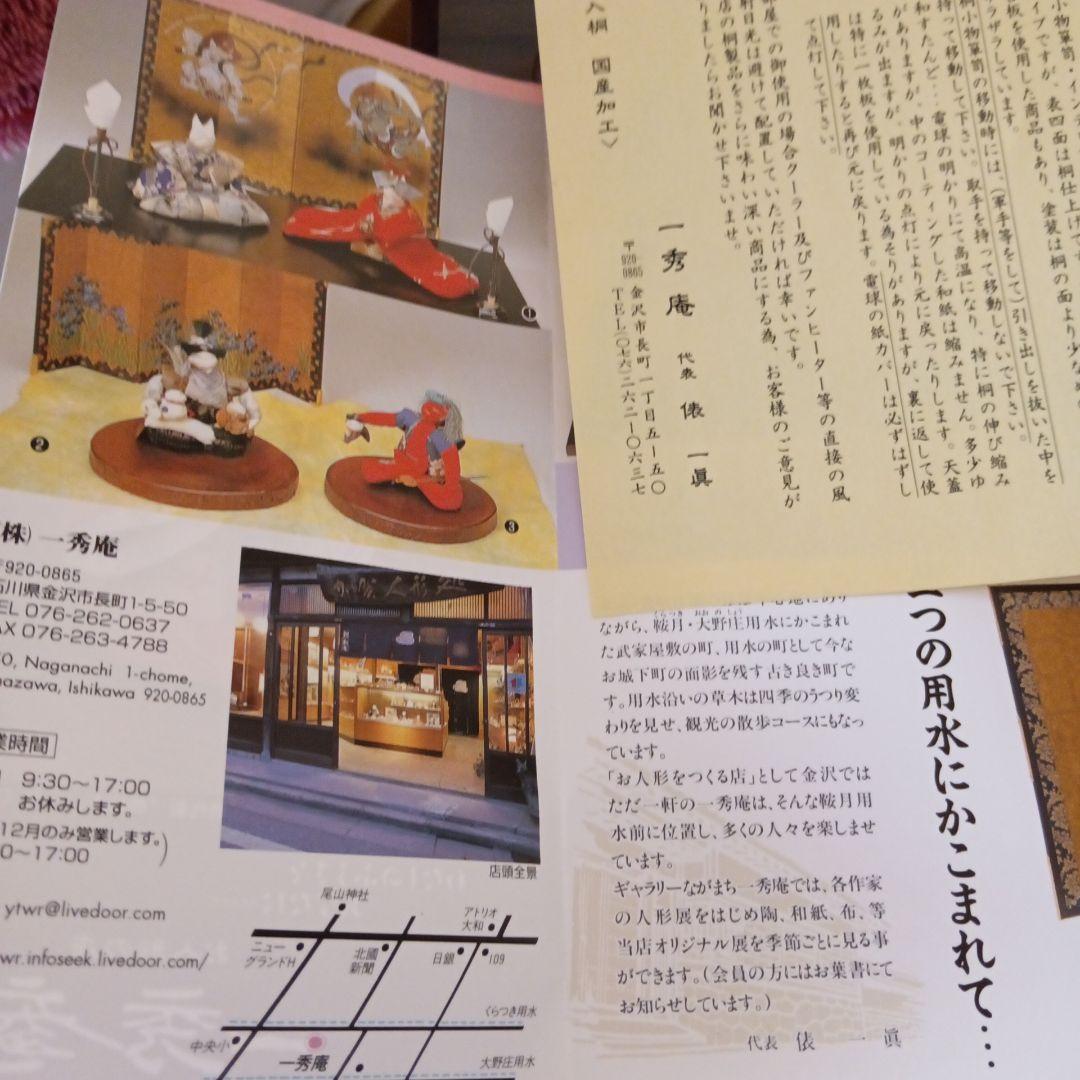 ❶
❷
❸
株) 一秀庵
〒920-0865
石川県金沢市長町1-5-50
TEL 076-262-0637
FAX 076-263-4788
50, Naganachi 1-chome,
nazawa, Ishikawa 920-0865
業時間
9:30〜17:00
お休みします。
12月のみ営業します。)
0〜17:00
ytwr@livedoor.com
wr.infoseek.livedoor.com/
店頭全景
尾山神社
アトリオ
大和
ニュー
グランドH
北國
新聞
日銀
109
くらつき用水
中央小
一秀庵
大野庄用水
小物箪笥・イン
イプですが、表四面は桐仕上げです
板を使用した商品もあり、塗装は桐の面より少なめ
ラザラしています。
桐小物箪笥の移動時には、(軍手等をして)引き出しを抜いた中を
持って移動して下さい。取手を持って移動しないで下さい。
和すたんど…電球の明かりにて高温になり、特に桐の伸び縮み
がありますが、中のコーティングした和紙は縮みません。多少ゆ
るみが出ますが、明かりの点灯により元に戻ったりします。天蓋
は特に一枚板を使用している為そりがありますが、裏に返して使
用したりすると再び元に戻ります。電球の紙カバーは必ずはずし
て点灯して下さい。
部屋での御使用の場合クーラー及びファンヒーター等の直接の風
射日光は避けて配置していただければ幸いです。
店の桐製品をさらに味わい深い商品にする為、お客様のご意見が
りましたらお聞かせ下さいませ。
一秀庵 代表 俵 一眞
〒920-0865 金沢市長町一丁目五ー五〇
TEL(〇七六)二六二ー〇六三七
入桐 国産加工〉
つの用水にかこまれて…
ながら、鞍月・大野庄用水にかこまれ
た武家屋敷の町、用水の町として今な
お城下町の面影を残す古き良き町で
す。用水沿いの草木は四季のうつり変
わりを見せ、観光の散歩コースにもなっ
ています。
「お人形をつくる店」として金沢では
ただ一軒の一秀庵は、そんな鞍月用
水前に位置し、多くの人々を楽しませ
ています。
ギャラリーながまち一秀庵では、各作家
の人形展をはじめ陶、和紙、布、等
当店オリジナル展を季節ごとに見る事
ができます。(会員の方にはお葉書にて
お知らせしています。)
代表 俵 一眞